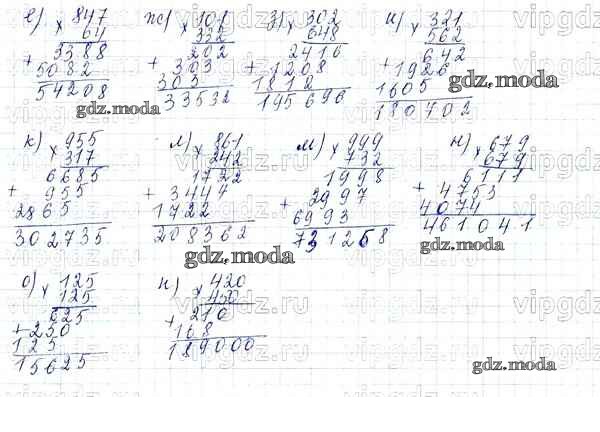 е) × 847
64
3388
+ 5082
54208
ж) × 101
332
202
+ 303
303
33532
з) × 302
648
2416
+ 1208
1812
195696
и) × 321
562
642
+ 1926
1605
180402
gdz.moda
gdz.moda
к) × 955
317
6685
+ 955
2865
302735
л) × 861
242
1722
+ 3444
1722
208362
gdz.moda
м) × 999
732
1998
+ 2997
6993
731268
н) × 679
679
6111
+ 4753
4074
461041
gdz.moda
о) × 125
125
625
+ 250
125
15625
п) × 420
450
210
+ 168
189000
gdz.moda
vipgdz.ru